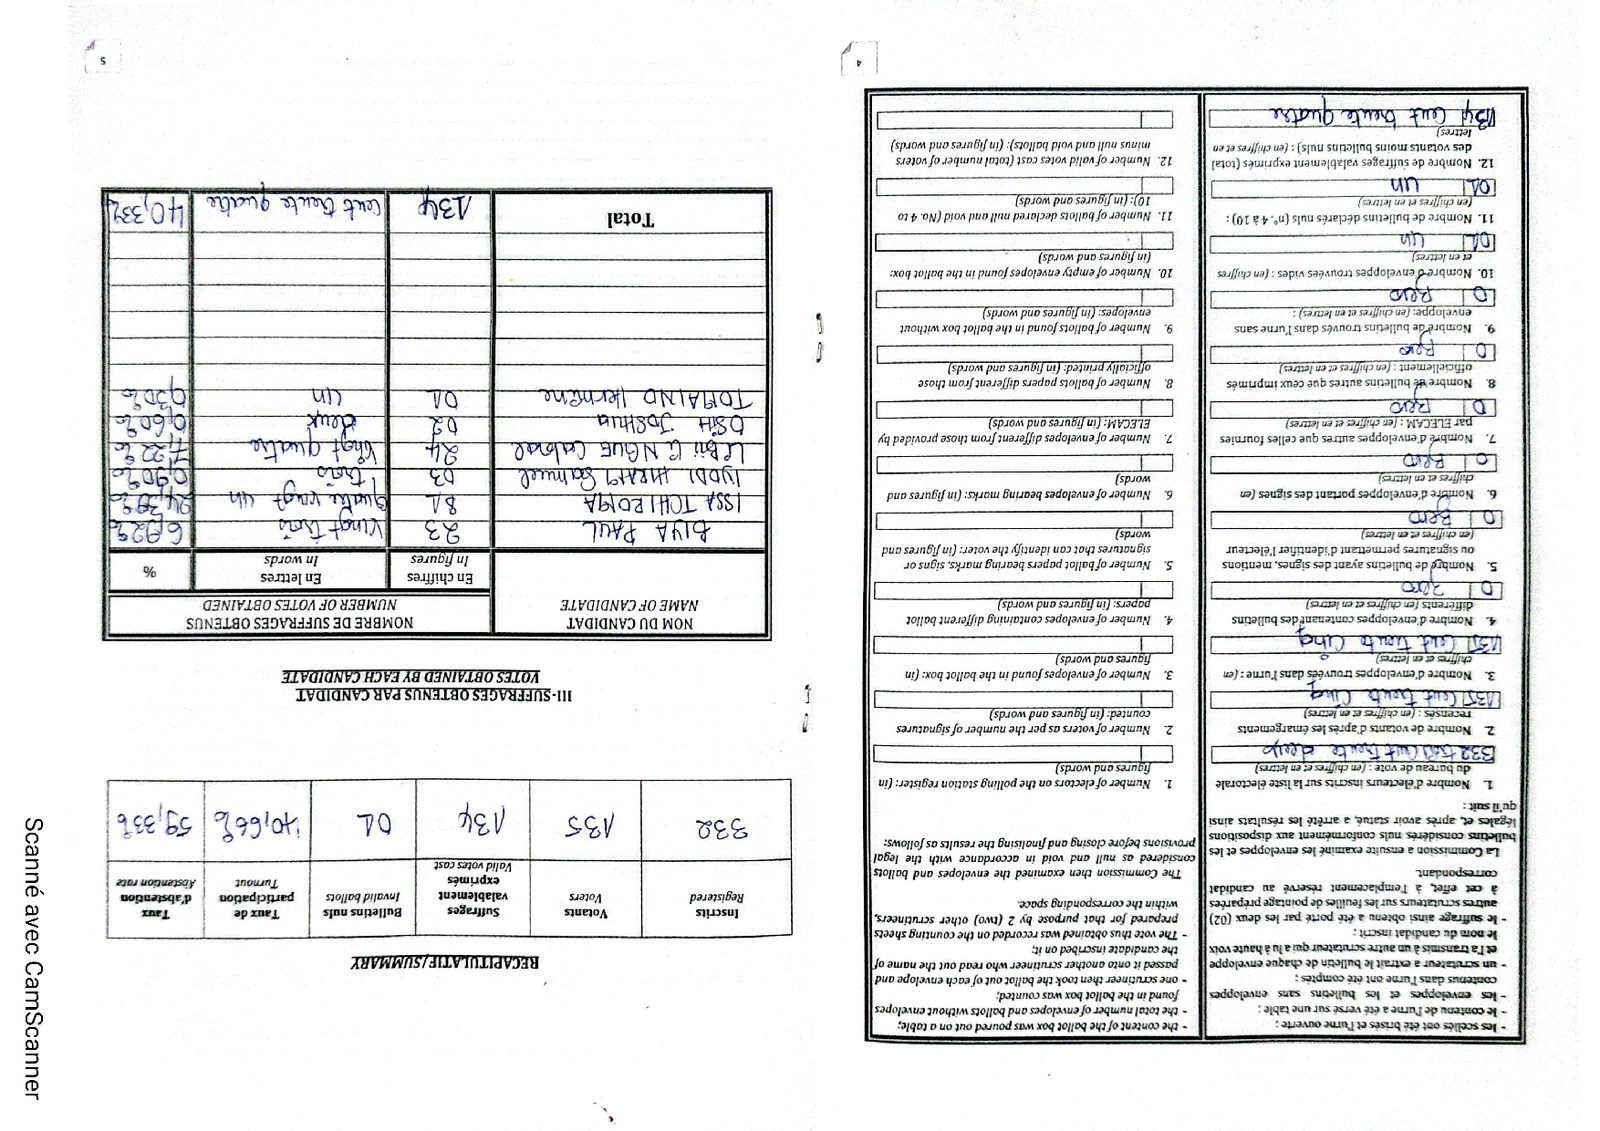 4
- les scellés ont été brisés et l'urne ouverte ;
- le contenu de l'urne a été versé sur une table ;
- les enveloppes et les bulletins sans enveloppes
contenus dans l'urne ont été comptés ;
- un scrutateur a extrait le bulletin de chaque enveloppe
et l'a transmis à un autre scrutateur qui a lu à haute voix
le nom du candidat inscrit ;
- le suffrage ainsi obtenu a été porté par les deux (02)
autres scrutateurs sur les feuilles de pointage préparées
à cet effet, à l'emplacement réservé au candidat
correspondant.
La Commission a ensuite examiné les enveloppes et les
bulletins considérés nuls conformément aux dispositions
légales et, après avoir statué, a arrêté les résultats ainsi
qu'il suit :
1. Nombre d'électeurs inscrits sur la liste électorale
du bureau de vote : (en chiffres et en lettres)
332 trois cent trente deux
2. Nombre de votants d'après les émargements
recensés : (en chiffres et en lettres)
135 Cent trente Cinq
3. Nombre d'enveloppes trouvées dans l'urne : (en
chiffres et en lettres)
135 Cent trente Cinq
4. Nombre d'enveloppes contenant des bulletins
différents (en chiffres et en lettres)
0 Zero
5. Nombre de bulletins ayant des signes, mentions
ou signatures permettant d'identifier l'électeur
(en chiffres et en lettres)
0 Zero
6. Nombre d'enveloppes portant des signes (en
chiffres et en lettres)
0 Zero
7. Nombre d'enveloppes autres que celles fournies
par ELECAM : (en chiffres et en lettres)
0 Zero
8. Nombre de bulletins autres que ceux imprimés
officiellement : (en chiffres et en lettres)
0 Zero
9. Nombre de bulletins trouvés dans l'urne sans
enveloppe: (en chiffres et en lettres) :
0 Zero
10. Nombre d'enveloppes trouvées vides : (en chiffres
et en lettres)
01 un
11. Nombre de bulletins déclarés nuls (n°. 4 à 10) :
(en chiffres et en lettres)
01 un
12. Nombre de suffrages valablement exprimés (total
des votants moins bulletins nuls) : (en chiffres et en
lettres)
134 Cent trente quatre
- the content of the ballot box was poured out on a table;
- the total number of envelopes and ballots without envelopes
found in the ballot box was counted;
- one scrutineer then took the ballot out of each envelope and
passed it onto another scrutineer who read out the name of
the candidate inscribed on it;
- The vote thus obtained was recorded on the counting sheets
prepared for that purpose by 2 (two) other scrutineers,
within the corresponding space.
The Commission then examined the envelopes and ballots
considered as null and void in accordance with the legal
provisions before closing and finalising the results as follows:
1. Number of electors on the polling station register: (in
figures and words)
2. Number of voters as per the number of signatures
counted: (in figures and words)
3. Number of envelopes found in the ballot box: (in
figures and words)
4. Number of envelopes containing different ballot
papers: (in figures and words)
5. Number of ballot papers bearing marks, signs or
signatures that can identify the voter: (in figures and
words)
6. Number of envelopes bearing marks: (in figures and
words)
7. Number of envelopes different from those provided by
ELECAM: (in figures and words)
8. Number of ballots papers different from those
officially printed: (in figures and words)
9. Number of ballots found in the ballot box without
envelopes: (in figures and words)
10. Number of empty envelopes found in the ballot box:
(in figures and words)
11. Number of ballots declared null and void (No. 4 to
10): (in figures and words)
12. Number of valid votes cast (total number of voters
minus null and void ballots): (in figures and words)
5
RECAPITULATIF/SUMMARY
Inscrits Registered Votants Voters Suffrages valablement exprimés Valid votes cast Bulletins nuls Invalid ballots Taux de participation Turnout Taux d'abstention Abstention rate
332 135 134 01 40,66% 59,33%
III- SUFFRAGES OBTENUS PAR CANDIDAT
VOTES OBTAINED BY EACH CANDIDATE
NOM DU CANDIDAT NOMBRE DE SUFFRAGES OBTENUS
NAME OF CANDIDATE NUMBER OF VOTES OBTAINED
En chiffres En lettres %
In figures In words
BIYA PAUL 23 Vingt trois 6,92%
ISSA TCHIROMA 81 quatre vingt un 24,39%
IYODI HIRAM Samuel 03 trois 0,90%
LIBII LI NGUE Cabral 24 Vingt quatre 7,22%
OSIH JOSHUA 02 deux 0,60%
TOMAINO Hermine 01 un 0,30%
Total 134 Cent trente quatre 40,33%
Scanné avec CamScanner